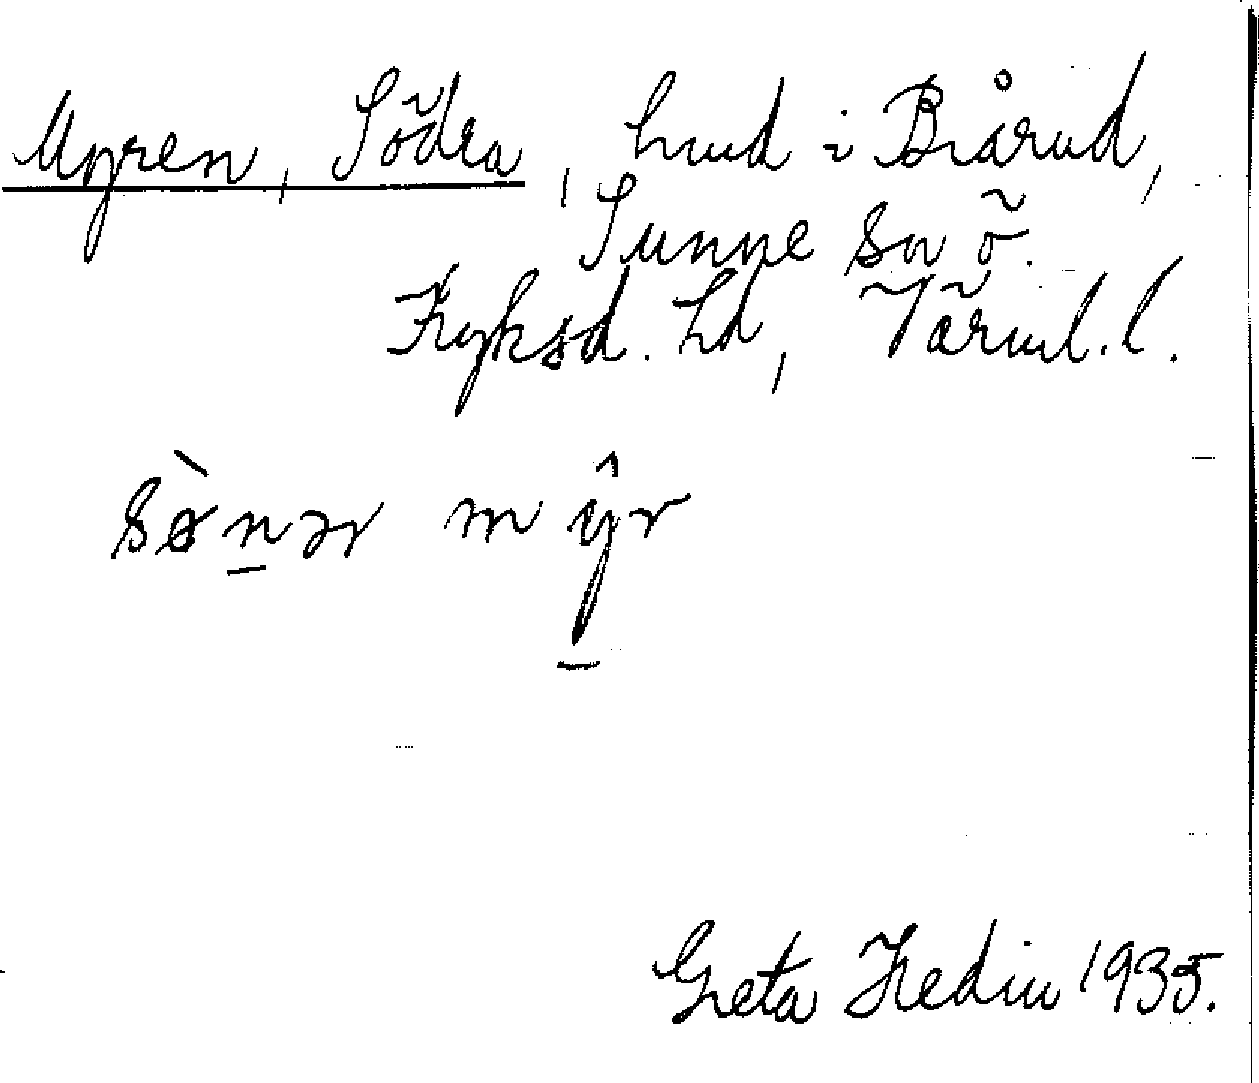 Myren, Södra, hmd i Bårud,
Sunne sn ö.
Fryksd. hd, Värml. l.
sø̀nər mŷr
Greta Hedin 1935.